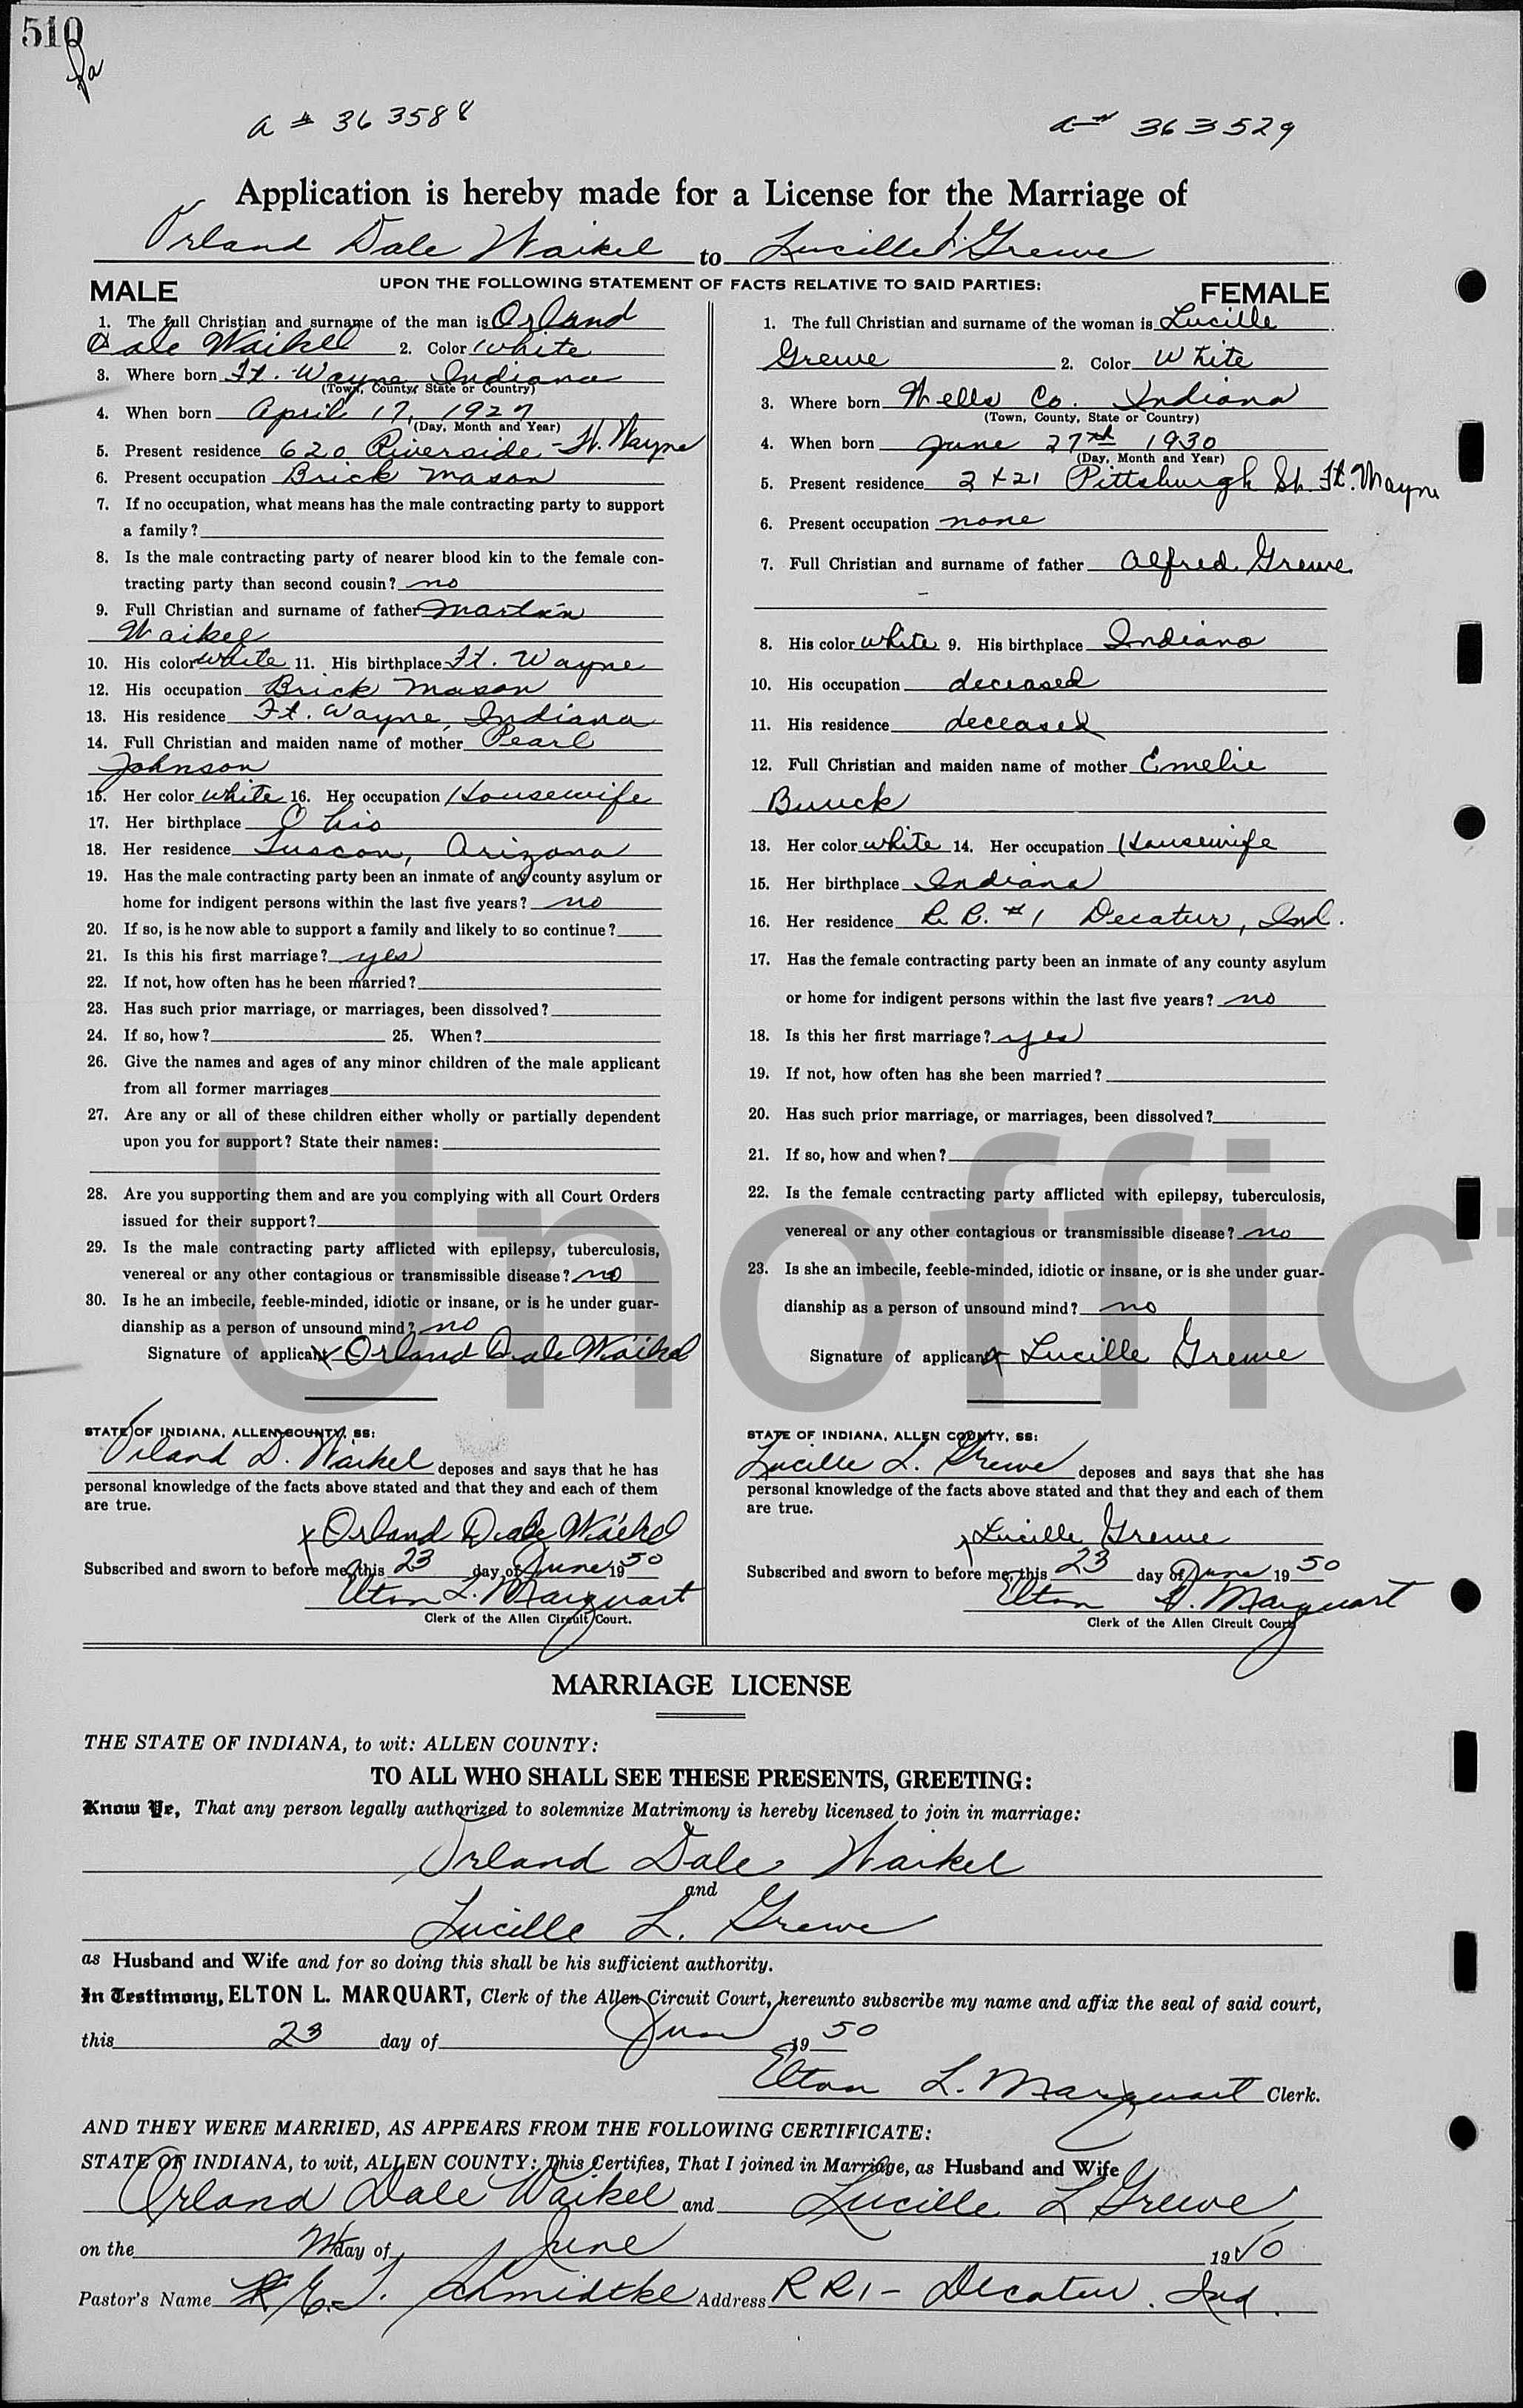 510
a # 363588
a # 363529
Application is hereby made for a License for the Marriage of
Orland Dale Waikel to Lucille L. Grewe
UPON THE FOLLOWING STATEMENT OF FACTS RELATIVE TO SAID PARTIES:
MALE
1. The full Christian and surname of the man is Orland
Dale Waikel 2. Color White
3. Where born Ft. Wayne Indiana
(Town, County, State or Country)
4. When born April 17, 1927
(Day, Month and Year)
5. Present residence 620 Riverside - Ft. Wayne
6. Present occupation Brick Mason
7. If no occupation, what means has the male contracting party to support
a family?
8. Is the male contracting party of nearer blood kin to the female con-
tracting party than second cousin? no
9. Full Christian and surname of father Martin
Waikel
10. His color white 11. His birthplace Ft. Wayne
12. His occupation Brick Mason
13. His residence Ft. Wayne, Indiana
14. Full Christian and maiden name of mother Pearl
Johnson
15. Her color white 16. Her occupation Housewife
17. Her birthplace Ohio
18. Her residence Tuscon, Arizona
19. Has the male contracting party been an inmate of any county asylum or
home for indigent persons within the last five years? no
20. If so, is he now able to support a family and likely to so continue?
21. Is this his first marriage? yes
22. If not, how often has he been married?
23. Has such prior marriage, or marriages, been dissolved?
24. If so, how? 25. When?
26. Give the names and ages of any minor children of the male applicant
from all former marriages
27. Are any or all of these children either wholly or partially dependent
upon you for support? State their names:
28. Are you supporting them and are you complying with all Court Orders
issued for their support?
29. Is the male contracting party afflicted with epilepsy, tuberculosis,
venereal or any other contagious or transmissible disease? no
30. Is he an imbecile, feeble-minded, idiotic or insane, or is he under guar-
dianship as a person of unsound mind? no
Signature of applicant x Orland Dale Waikel
STATE OF INDIANA, ALLEN COUNTY, SS:
Orland D. Waikel deposes and says that he has
personal knowledge of the facts above stated and that they and each of them
are true.
x Orland Dale Waikel
Subscribed and sworn to before me, this 23 day of June 1950
Elton L. Marquart
Clerk of the Allen Circuit Court.
FEMALE
1. The full Christian and surname of the woman is Lucille
Grewe 2. Color White
3. Where born Wells Co. Indiana
(Town, County, State or Country)
4. When born June 27th 1930
(Day, Month and Year)
5. Present residence Pittsburgh St. Ft. Wayne
6. Present occupation none
7. Full Christian and surname of father Alfred Grewe
8. His color white 9. His birthplace Indiana
10. His occupation deceased
11. His residence deceased
12. Full Christian and maiden name of mother Emelie
Buuck
13. Her color white 14. Her occupation Housewife
15. Her birthplace Indiana
16. Her residence R. R. #1 Decatur, Ind.
17. Has the female contracting party been an inmate of any county asylum
or home for indigent persons within the last five years? no
18. Is this her first marriage? yes
19. If not, how often has she been married?
20. Has such prior marriage, or marriages, been dissolved?
21. If so, how and when?
22. Is the female contracting party afflicted with epilepsy, tuberculosis,
venereal or any other contagious or transmissible disease? no
23. Is she an imbecile, feeble-minded, idiotic or insane, or is she under guar-
dianship as a person of unsound mind? no
Signature of applicant x Lucille Grewe
STATE OF INDIANA, ALLEN COUNTY, SS:
Lucille L. Grewe deposes and says that she has
personal knowledge of the facts above stated and that they and each of them
are true.
x Lucille Grewe
Subscribed and sworn to before me, this 23 day of June 1950
Elton L. Marquart
Clerk of the Allen Circuit Court
Unoffic
MARRIAGE LICENSE
THE STATE OF INDIANA, to wit: ALLEN COUNTY:
TO ALL WHO SHALL SEE THESE PRESENTS, GREETING:
Know Ye, That any person legally authorized to solemnize Matrimony is hereby licensed to join in marriage:
Orland Dale Waikel
and
Lucille L. Grewe
as Husband and Wife and for so doing this shall be his sufficient authority.
In Testimony, ELTON L. MARQUART, Clerk of the Allen Circuit Court, hereunto subscribe my name and affix the seal of said court,
this 23 day of June 1950
Elton L. Marquart Clerk.
AND THEY WERE MARRIED, AS APPEARS FROM THE FOLLOWING CERTIFICATE:
STATE OF INDIANA, to wit, ALLEN COUNTY: This Certifies, That I joined in Marriage, as Husband and Wife
Orland Dale Waikel and Lucille L Grewe
on the day of June 1950
Pastor's Name E. T. Schmidtke Address R R 1 - Decatur, Ind.